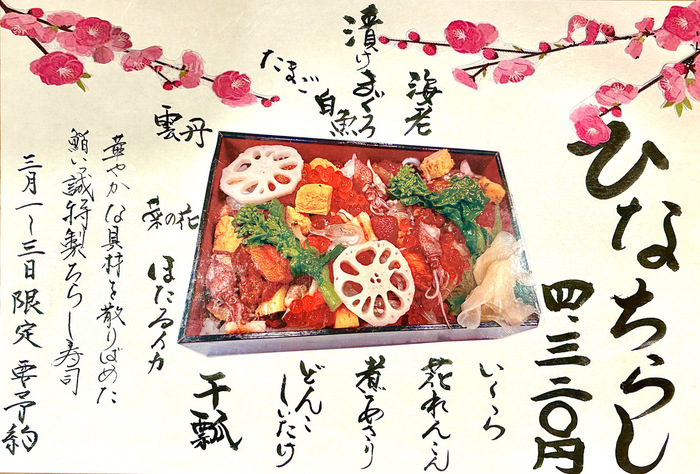 ひなちらし
四、三二〇円
海老
漬けまぐろ
白魚
たまご
雲丹
菜の花
ほたるイカ
いくら
花れんこん
煮あさり
どんこ
しいたけ
干瓢
華やかな具材を散りばめた
鮨い誠特製ちらし寿司
三月一~三日限定 要予約